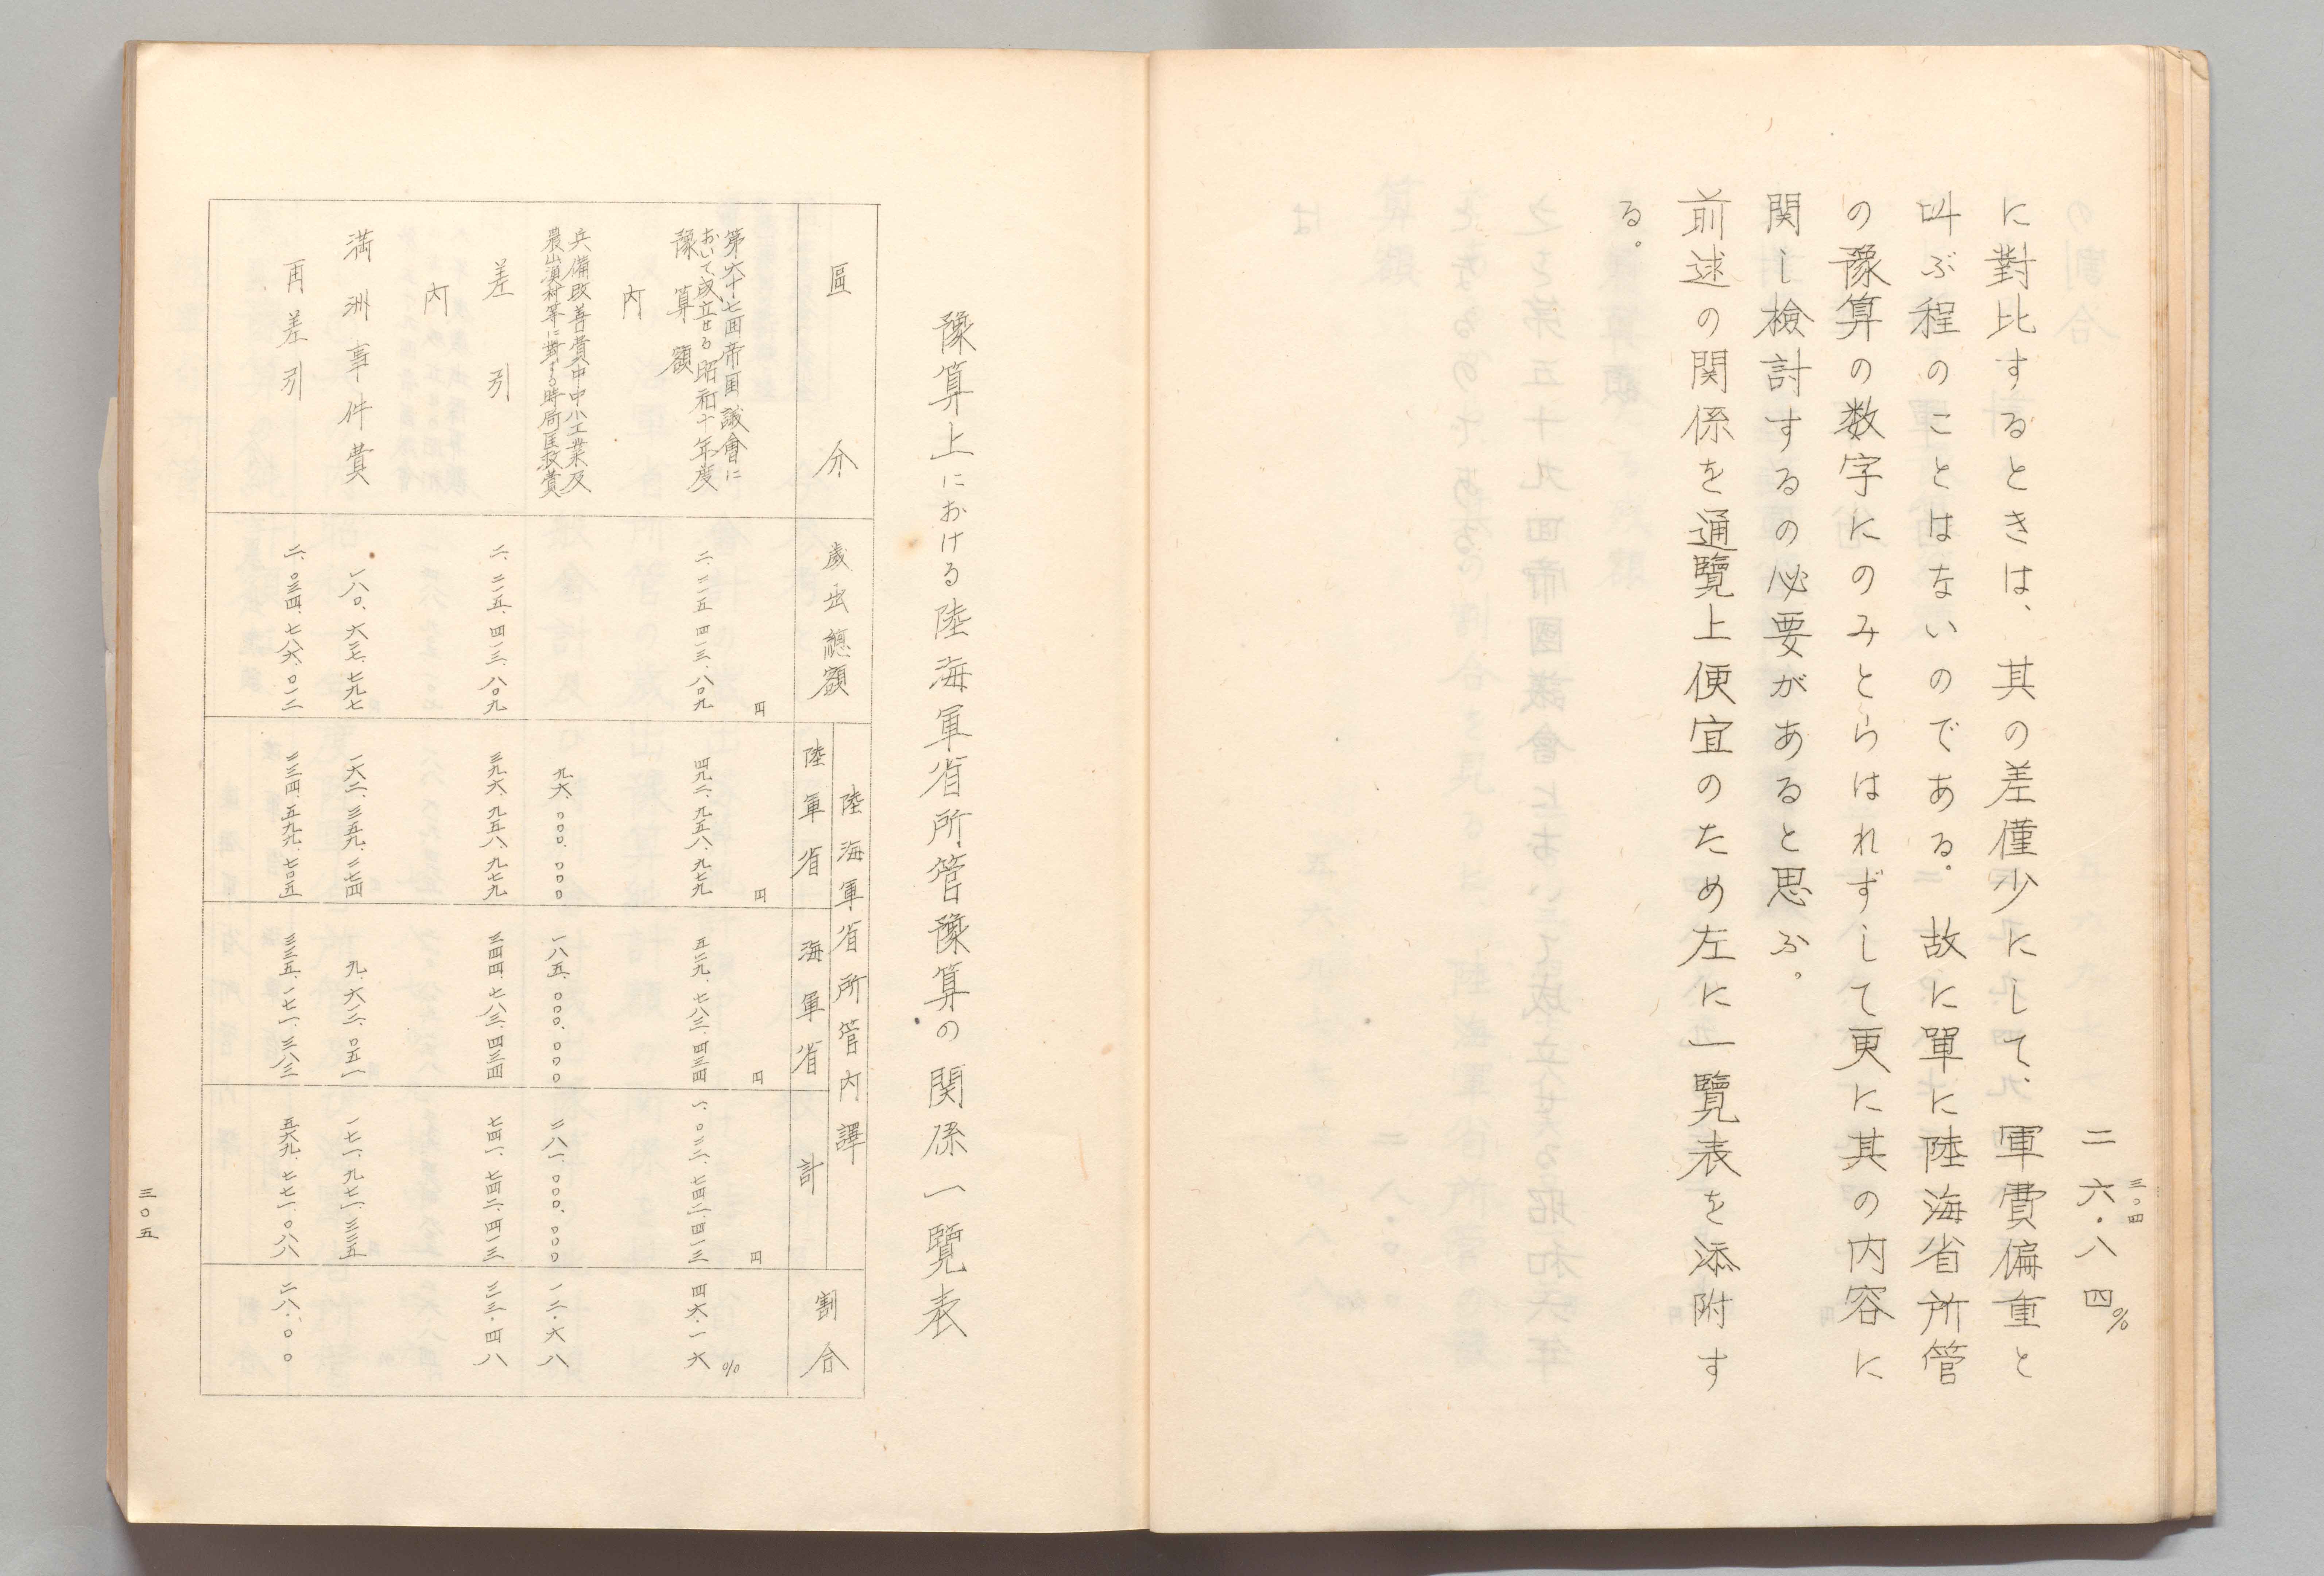 三〇四
二六・八四%
に對比するときは、其の差僅少にして、軍費偏重と
叫ぶ程のことはないのである。故に單に陸海省所管
の豫算の数字にのみとらはれずして更に其の内容に
関し檢討するの必要があると思ふ。
前述の関係を通覽上便宜のため左に一覽表を添附す
る。
豫算上における陸海軍省所管豫算の関係一覽表
區分
歳出總額
陸海軍省所管内譯
陸軍省
海軍省
計
割合
円
円
円
円
%
第六十七回帝国議會に
おいて成立せる昭和十年度
豫算額
二、二一五、四一三、八〇九
四九二、九五八、九七九
五二九、七八三、四三四
一、〇二二、七四二、四一三
四六・一六
内
兵備改善費中中小工業及
農山漁村等に對する時局匡救費
九六、〇〇〇、〇〇〇
一八五、〇〇〇、〇〇〇
二八一、〇〇〇、〇〇〇
一二・六八
差引
二、二一五、四一三、八〇九
三九六、九五八、九七九
三四四、七八三、四三四
七四一、七四二、四一三
三三・四八
内
満洲事件費
一八〇、六二七、七九七
一六二、三五九、二七四
九、六一二、〇五一
一七一、九七一、三二五
再差引
二、〇三四、七八六、〇一二
二三四、五九九、七〇五
三三五、一七一、三八三
五六九、七七一、〇八八
二八・〇〇
三〇五